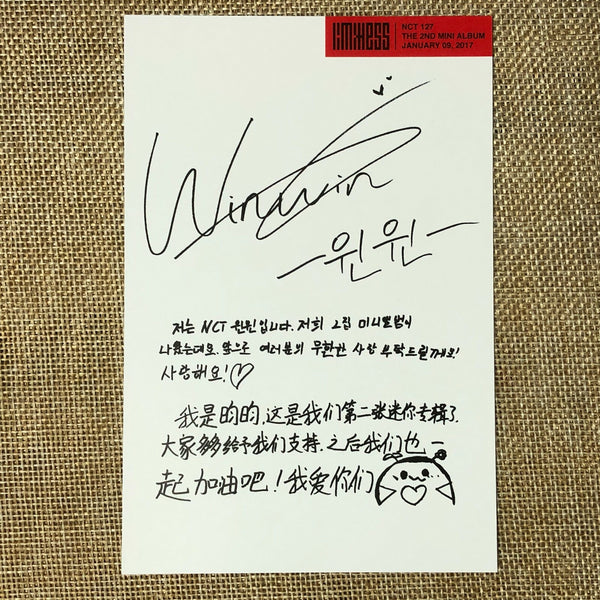 limitless
NCT 127
THE 2ND MINI ALBUM
JANUARY 09, 2017
Winwin
-윈윈-
저는 NCT 윈윈입니다. 저희 2집 미니앨범이
나왔는데요. 앞으로 여러분의 무한한 사랑 부탁드릴게요!
사랑해요!♡
我是昀昀,这是我们第二张迷你专辑了.
大家多多给予我们支持.之后我们也一
起加油吧!我爱你们